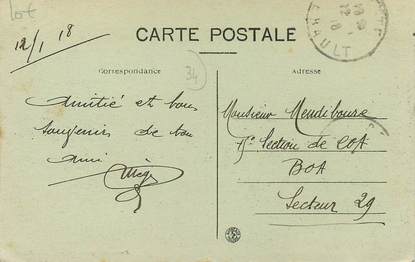 lot
12/1 18
CARTE POSTALE
34
HÉRAULT
Correspondance
Adresse
Amitié et bons
souvenirs de ton
ami
Monsieur Mendiboure
Section de COA
BOA
Secteur 29